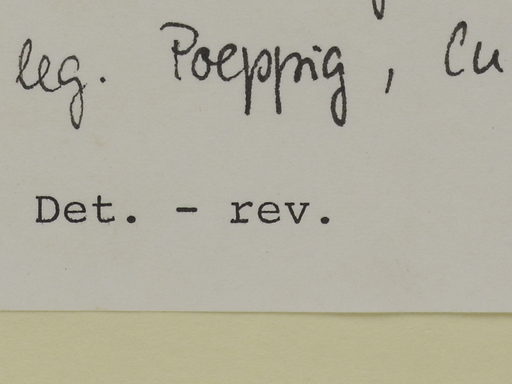 leg. Poeppig, Cu
Det. - rev.